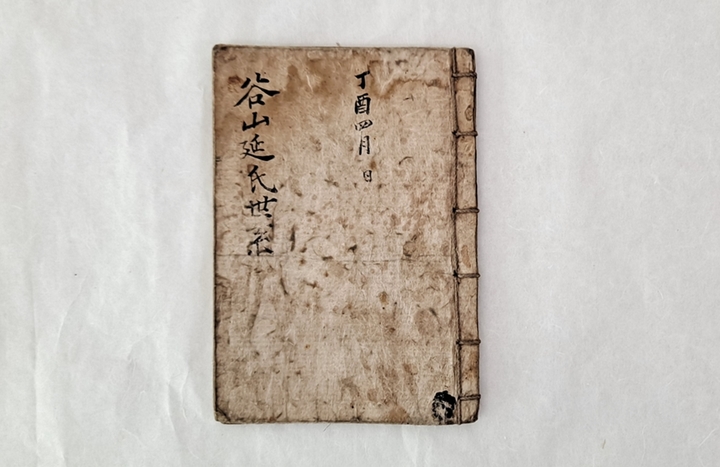 丁酉四月 日
谷山延氏世系